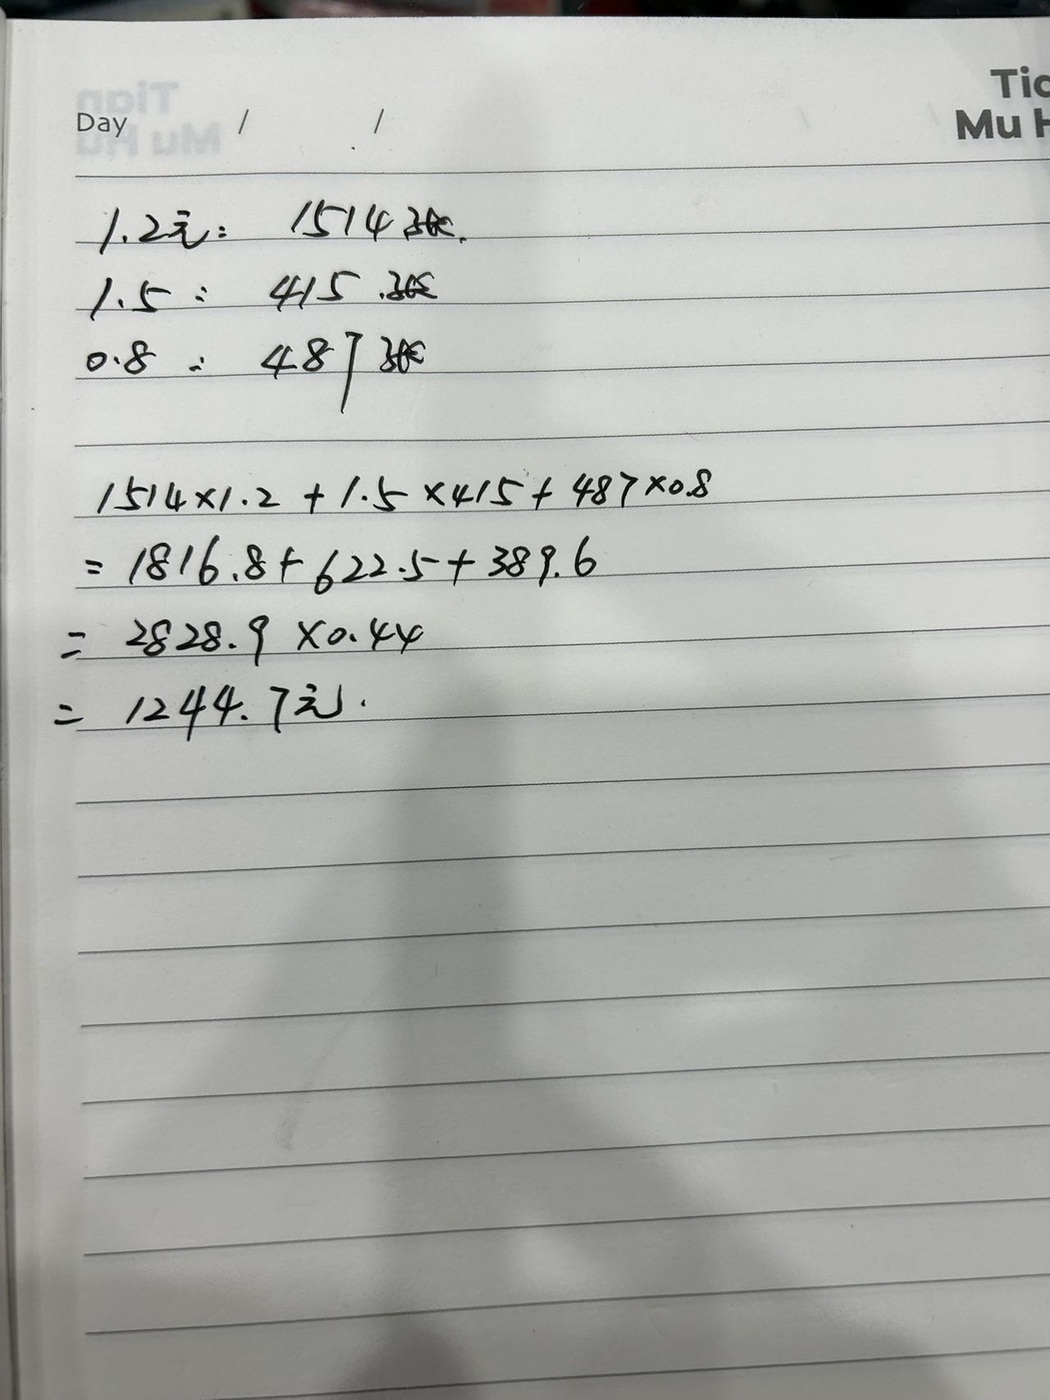 Day / /
Tia
Mu H
1.2元: 1514张.
1.5: 415.张
0.8: 487张
1514×1.2+1.5×415+487×0.8
=1816.8+622.5+389.6
=2828.9×0.44
=1244.7元.